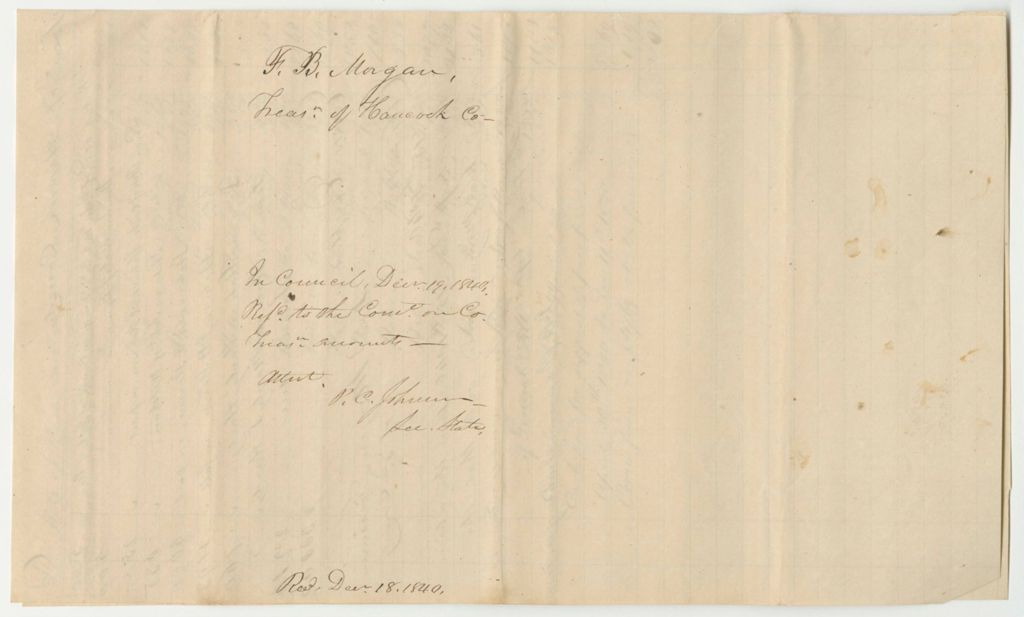 F. B. Morgan,
Treasr. of Hancock Co—
In Council, Decr. 19. 1840.
Refd. to the Come. on Co.
Treasr. accounts —
Attest.
P. C. Johnson—
Sec. State.
Recd. Decr. 18. 1840.